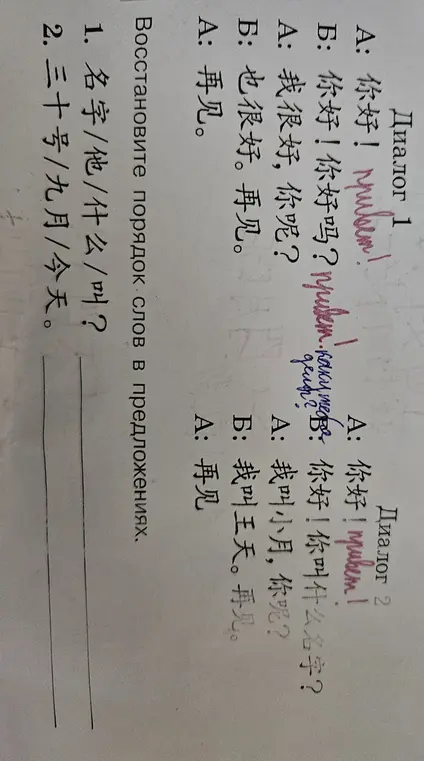 Диалог 1
А: 你好! привет!
Б: 你好!你好吗? привет! как у тебя дела?
А: 我很好, 你呢?
Б: 也很好。再见。
А: 再见。
Диалог 2
А: 你好! привет!
Б: 你好!你叫什么名字?
А: 我叫小月, 你呢?
Б: 我叫王天。再见。
А: 再见
Восстановите порядок слов в предложениях.
1. 名字/他/什么/叫?
2. 三十号/九月/今天。